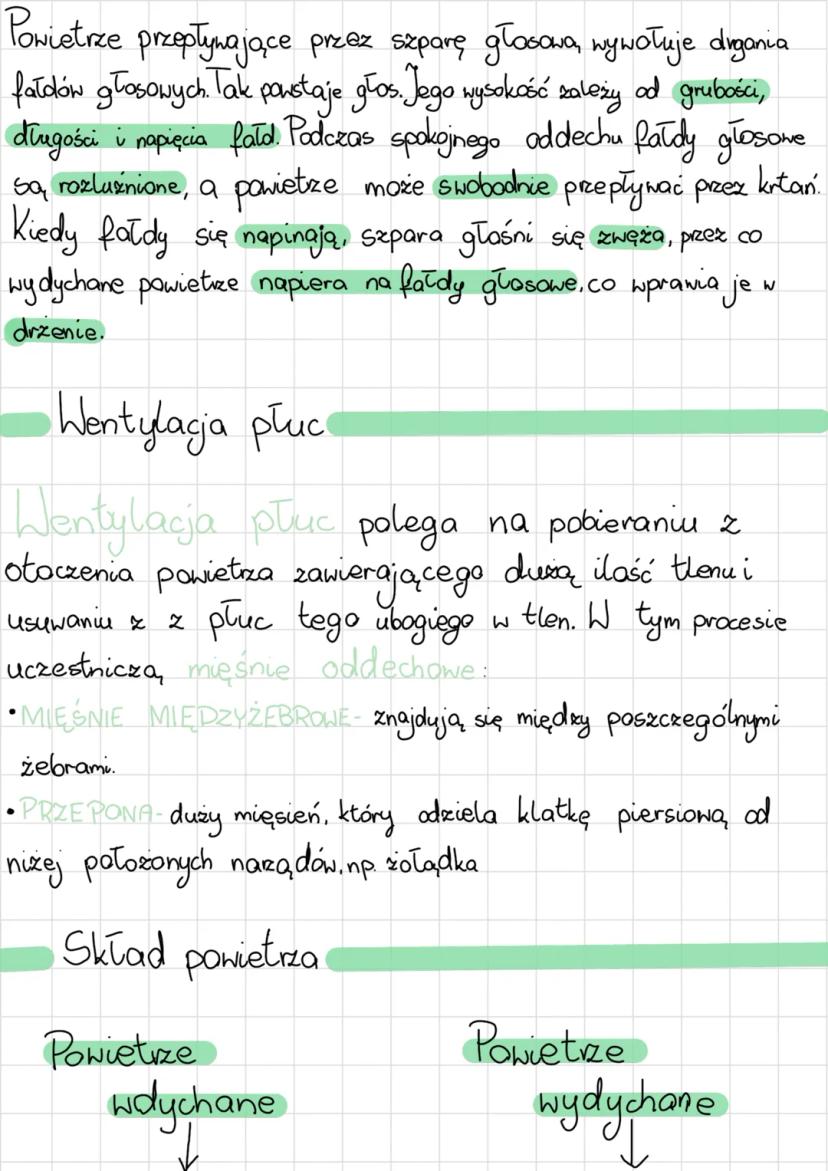 Powietrze przepływające przez szparę głosową wywołuje drgania
fałdów głosowych. Tak powstaje głos. Jego wysokość zależy od grubości,
długości i napięcia fałd. Podczas spokojnego oddechu fałdy głosowe
są rozluźnione, a powietrze może swobodnie przepływać przez krtań.
Kiedy fałdy się napinają, szpara głośni się zwęża, przez co
wydychane powietrze napiera na fałdy głosowe, co wprawia je w
drżenie.
Wentylacja płuc
Wentylacja płuc polega na pobieraniu z
otoczenia powietrza zawierającego dużą ilość tlenu i
usuwaniu z z płuc tego ubogiego w tlen. W tym procesie
uczestniczą mięśnie oddechowe:
• MIĘŚNIE MIĘDZYŻEBROWE- znajdują się między poszczególnymi
żebrami.
• PRZEPONA- duży mięsień, który odziela klatkę piersiową od
niżej położonych narządów, np. żołądka
Skład powietrza
Powietrze
wdychane
Powietrze
wydychane